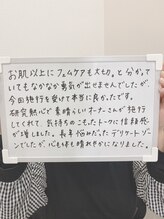 お肌以上にフェムケアも大切。と分かって
いてもなかなか勇気が出せませんでしたが
今回施行を受けて本当に良かったです。
研究熱心で素晴らしいオーナーさんが施行
してくれて、気持ちのこもったトークに信頼感
が増しました。長年悩みだったデリケートゾー
ンでしたが、心も体も晴れやかになりました。